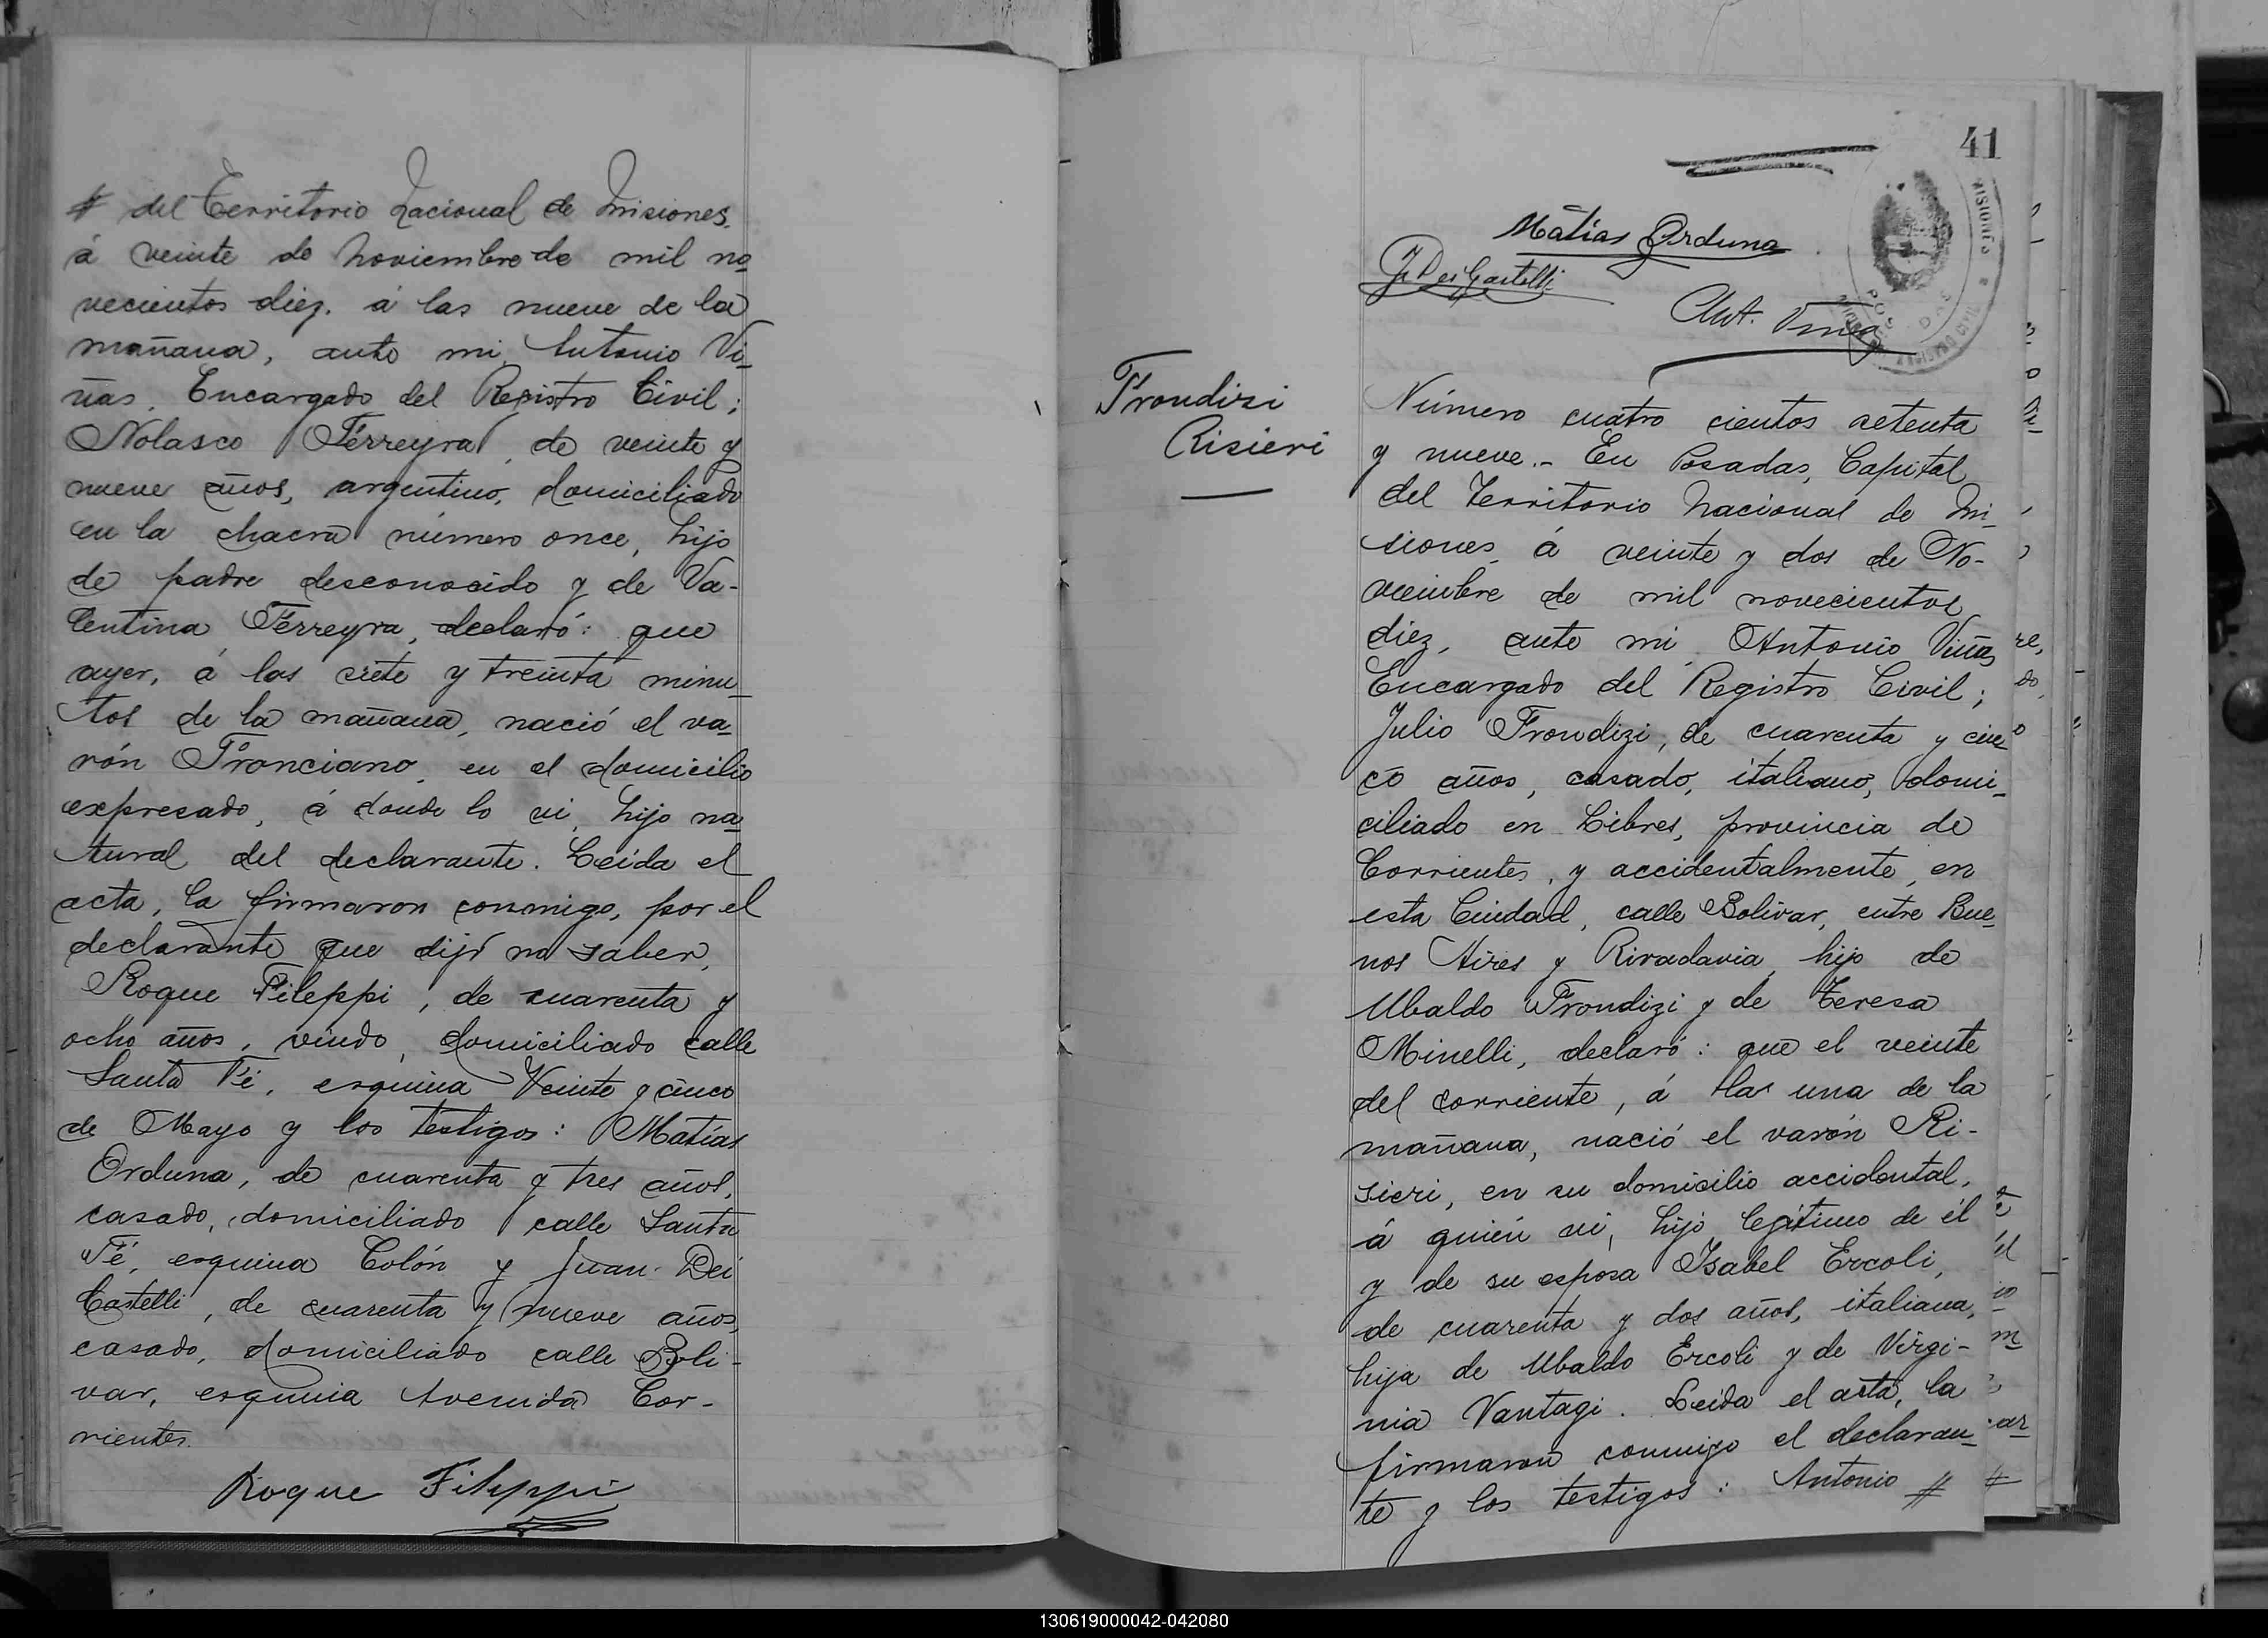 # del Territorio Nacional de Misiones,
á veinte de Noviembre de mil no
vecientos diez, á las nueve de la
mañana, ante mi, Antonio Vi-
ñas, Encargado del Registro Civil;
Nolasco Ferreyra, de veinte y
nueve años, argentino, domiciliado
en la chacra número once, hijo
de padre desconocido y de Va-
lentina Ferreyra, declaró: que
ayer, á las siete y treinta minu-
tos de la mañana, nació el va-
rón Pronciano, en el domicilio
expresado, á donde lo vi, hijo na
tural del declarante. Leída el
acta, la firmaron conmigo, por el
declarante que dijo no saber,
Roque Fileppi, de cuarenta y
ocho años, viudo, domiciliado calle
Santa Fé, esquina Veinte y cinco
de Mayo y los testigos: Matías
Orduna, de cuarenta y tres años,
casado, domiciliado calle Santa
Fé, esquina Colón y Juan Dei
Castelli, de cuarenta y nueve años,
casado, domiciliado calle Boli-
var, esquina Avenida Cor-
rientes.
Roque Fileppi
41
MISIONES
Matías Orduna
J. Dei Castelli
Ant. Viñas
Frondizi
Risieri
Número cuatro cientos setenta
y nueve.- En Posadas, Capital
del Territorio Nacional de Mi-
siones, á veinte y dos de No-
viembre de mil novecientos
diez, ante mi, Antonio Viñas,
Encargado del Registro Civil;
Julio Frondizi, de cuarenta y cin-
co años, casado, italiano, domi-
ciliado en Libres, provincia de
Corrientes, y accidentalmente, en
esta Ciudad, calle Bolivar, entre Bue-
nos Aires y Rivadavia, hijo de
Ubaldo Frondizi y de Teresa
Minelli, declaró: que el veinte
del corriente, á las una de la
mañana, nació el varón Ri-
sieri, en su domicilio accidental,
á quién vi, hijo legítimo de él
y de su esposa Isabel Ercoli,
de cuarenta y dos años, italiana,
hija de Ubaldo Ercoli y de Virgi-
nia Vantagi. Leída el acta, la
firmaron conmigo el declaran-
te y los testigos: Antonio #
130619000042-042080